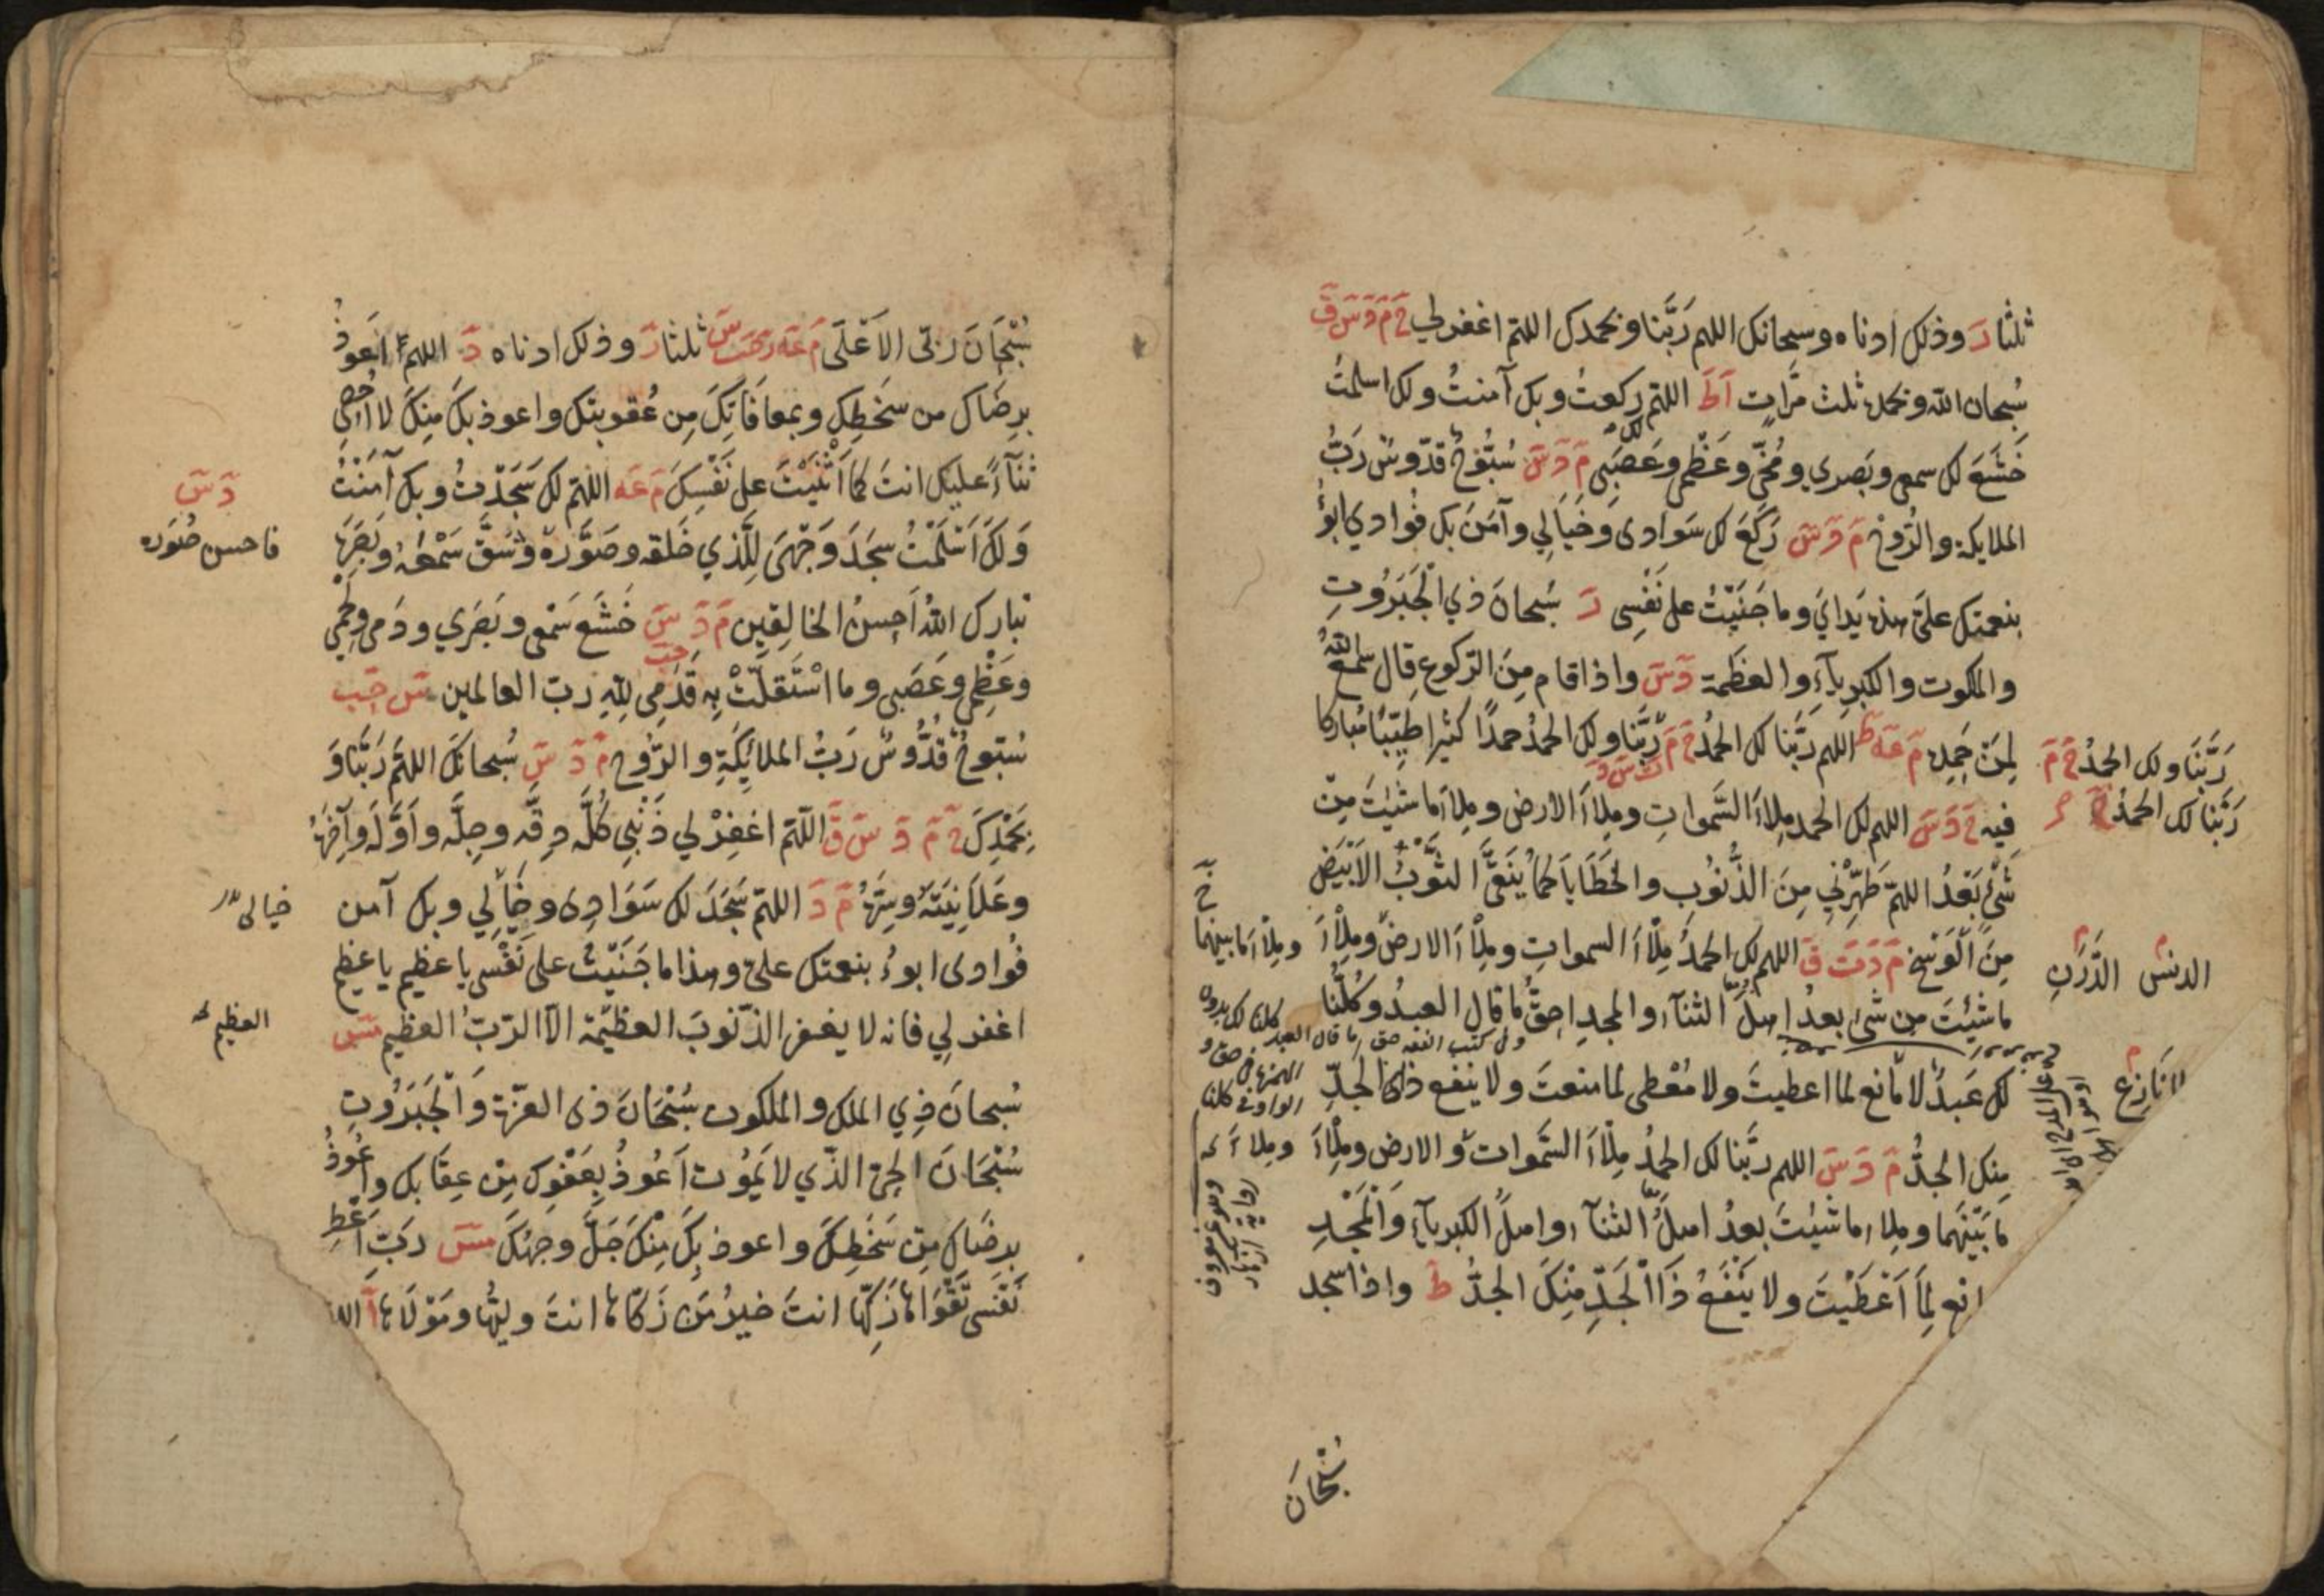 ثلثا رَ وذلك ادناه وسبحانك اللهم رَبَّنا وبحمدك اللهم اغفر لي خ م د س ق
سُبحان الله وبحمده ثلث مرَّات اَ ط اللهم لك ركعتُ وبك آمنتُ ولك اسلمتُ
خَشَعَ لك سمعي وبَصري ومُخّي وعَظْمي وعَصَبي م د س سُبُّوحٌ قدّوسٌ رَبُّ
الملايكة والرُّوحْ م د س رَكَعَ لك سَوادى وَخَيَالِي وآمَنَ بك فُوادي ابؤُ
بنعمتك علَيَّ هذه يَدايَ وما جَنَيْتُ على نَفْسِى رَ سُبحانَ ذي الْجَبَرُوتِ
والملكوت والكبرياءِ والعظَمة دَ سَ واذا قام مِنَ الركوع قال سمع اللهُ
لِمَنْ حَمِده م عه ط اللهم رَبَّنا لك الحمدُ خ م رَبَّنا ولك الحمدُ حمدًا كثيرا طيّبًا مُباركا
رَبَّنَا ولك الحمدُ خ م
رَبَّنا لك الحمدُ خ
فيه خ د س اللهم لك الحمد مِلأَ السَّمواتِ ومِلأَ الارض ومِلأَ ما شئتَ مِنْ
شَيْءٍ بَعْدُ اللهمَّ طَهِّرْنِي مِنَ الذُّنُوبِ والخَطَايا كما يُنَقَّى الثَّوْبُ الاَبْيَضُ
مِنَ الْوَسَخِ م د ت ق اللهم لك الحمدُ مِلْأَ السمواتِ ومِلْأَ الارضِ ومِلْأَ
وملأ ما بينهما
الدنس الدَّرَنِ
ما شِئْتَ من شئ بعدُ اهلَ الثنآء والمجدِ احقُّ ما قال العبدُ وكُلُّنا
لك عَبدٌ لا مانع لما اعطيتَ ولا مُعْطى لما منعتَ ولا ينفع ذا الجَدِّ
لا نَازِعَ
منك الجدُّ م د س اللهم ربَّنا لك الحمدُ مِلْأَ السَّموات والارض ومِلْأَ
ما بَيْنَهُما وملاء ما شِئتَ بعدُ اهلَ الثنآء واهلَ الكبرياءِ وَالْمَجْدِ
انع لِمَا اَعْطَيْتَ ولا يَنْفَعُ ذَا الْجَدِّ مِنْكَ الجدُّ ط واذا سجد
سُبْحَانَ
سُبْحَانَ رَبّى الاَعْلَى م عه ر حب مس ثلثا رَ وذلك ادناه دَ اللهمّ اَعوذُ
برِضَاك من سخَطِك وبمعافاتِكَ مِن عُقوبتك واعوذ بكَ منكَ لا اُحْصِي
ثنآءً عليك انتَ كما اَثْنَيْتَ على نَفْسِكَ م عه اللهم لك سَجَدْتُ وبك آمَنْتُ
دَ سَ
وَلَكَ اَسْلَمْتُ سجَدَ وَجْهىَ لِلَّذي خلَقه وصَوَّره وشَقَّ سَمْعَهُ وبَصَرَه
فاحسن صُوَره
تبارك اللهُ اَحسنُ الخالقِين م د س خَشَع سَمْعي وبَصَري ودَمى ولَحْمي
وعَظْمِي وعَصَبي وما اسْتَقلّتْ بِه قدَمِى لِلهِ ربّ العالمين س حب
سُبّوحٌ قُدُّوسٌ رَبُّ الملائِكَةِ والرُّوحِ م د س سُبحانكَ اللهمّ رَبَّنا وَ
بحَمْدِكَ خ م د س ق اللهم اغفِرْ لي ذَنْبِي كُلَّه دِقَّه وجِلَّه واَوَّلَه وآخِرَهُ
وعَلاَنِيَتَهُ وسِرَّهُ م د اللهم سَجَدَ لك سَوَادِى وخَيَالِي وبك آمن
خيالى
فُوادى ابوءُ بنعمتك علىّ وهذا ما جَنَيْتُ على نَفْسِى يا عظيم يا عظيم
اغفر لِي فانه لا يغفر الذّنوبَ العظيمةَ الاّ الرّبُّ العظيم مس
العظيمه
سُبحانَ ذِي الملك والملكوت سُبْحَانَ ذى العزّة وَالْجَبَرُوتِ
سُبْحَانَ الحيّ الذّي لا يَمُوت اَعُوذُ بعَفْوِك مِن عِقَابك واَعُوذُ
برضَاك مِن سَخَطِكَ واعوذ بِكَ مِنْكَ جَلَّ وجهُكَ مس رَبِّ اَعْطِ
نَفْسى تَقْوَاهَا زَكِّها انتَ خيرُ مَن زكّاها انتَ وليُّها ومَوْلاَها اَ الل